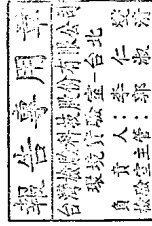 報告專用章
台灣檢驗科技股份有限公司
環境實驗室-台北
負責人：李仁
檢驗室主管：郭淑